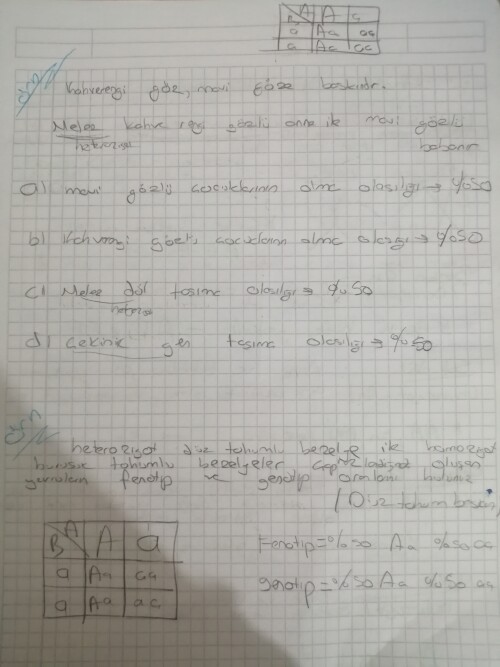 A A a
B
a Aa aa
a Aa aa
örn
Kahverengi göz, mavi göze baskındır.
Melez kahve rengi gözlü anne ile mavi gözlü
heterozigot babanın
a) mavi gözlü çocuklarının olma olasılığı → %50
b) Kahverengi gözlü çocukların olma olasılığı → %50
c) Melez döl taşıma olasılığı → %50
d) çekinik gen taşıma olasılığı → %50
örn
heterozigot düz tohumlu bezelye ile homozigot
buruşuk tohumlu bezelyeler çaprazladığında oluşan
fenotip ve genotip oranlarını bulunuz
(Düz tohum baskın)
A A a
B
a Aa aa
a Aa aa
Fenotip = %50 Aa %50 aa
genotip = %50 Aa %50 aa